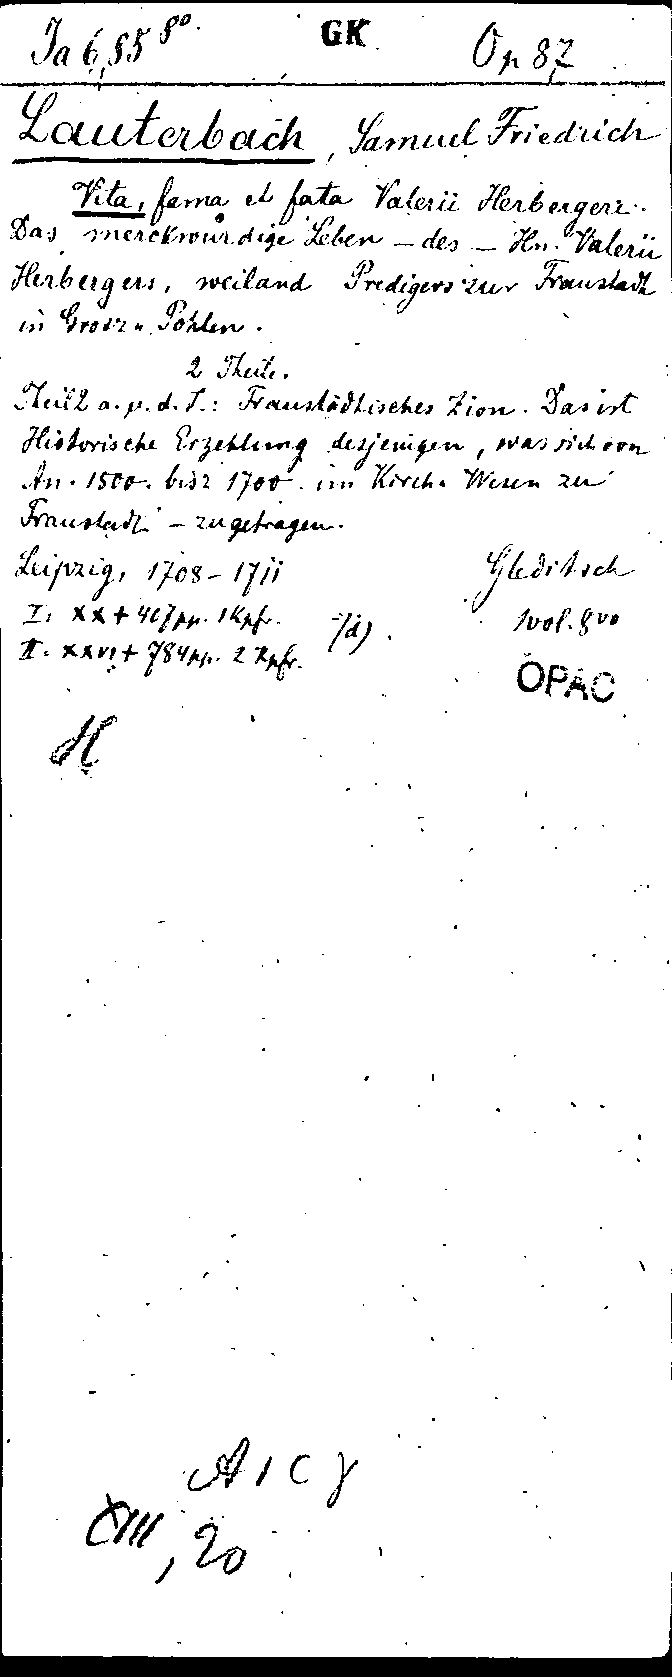 Ja 6,85 8°. GK Op 87
Lauterbach, Samuel Friedrich
Vita, fama et fata Valerii Herbergeri.
Das merckwůrdige Leben – des – Hn. Valerii
Herbergers, weiland Predigers zur Fraustadt
in Grosz-Pohlen.
2 Theile.
Theil 2 a. u. d. T.: Fraustädtisches Zion. Das ist
Historische Erzehlung desjenigen, was sich von
An. 1500. bisz 1700. im Kirch. Wesen zu
Fraustadt – zugetragen.
Leipzig, 1708–1711 Gleditsch
I. XX + 467 pp. 1 Kpfr. 1 vol. 8vo
II. XXVI + 784 pp. 2 Kpfr.
OPAC
H
A I C γ
XIII, 20